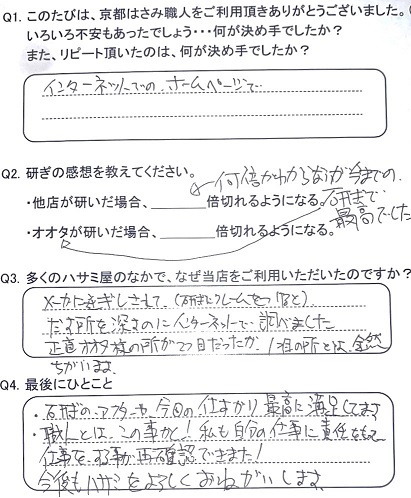 Q1. このたびは、京都はさみ職人をご利用頂きありがとうございました。(
いろいろ不安もあったでしょう・・・何が決め手でしたか?
また、リピート頂いたのは、何が決め手でしたか?
インターネットでの、ホームページで
Q2. 研ぎの感想を教えてください。
何倍かわからないが今までの、
・他店が研いだ場合、______倍切れるようになる。
研ぎで、
最高でした
・オオタが研いだ場合、______倍切れるようになる。
Q3. 多くのハサミ屋のなかで、なぜ当店をご利用いただいたのですか?
(研ぎにクレームをつけると)
所を探すのにインターネットで、調べました
正直オオタ様の所が2つ目だったが、1社の所とは、全然
ちがいます
Q4. 最後にひとこと
・研ぎの、アフターや、今回の仕上がり最高に満足してます
・職人とは、この事かと!私も自分の仕事に責任をもって
仕事を、する事が再確認できました!
今後もハサミをよろしくおねがいします